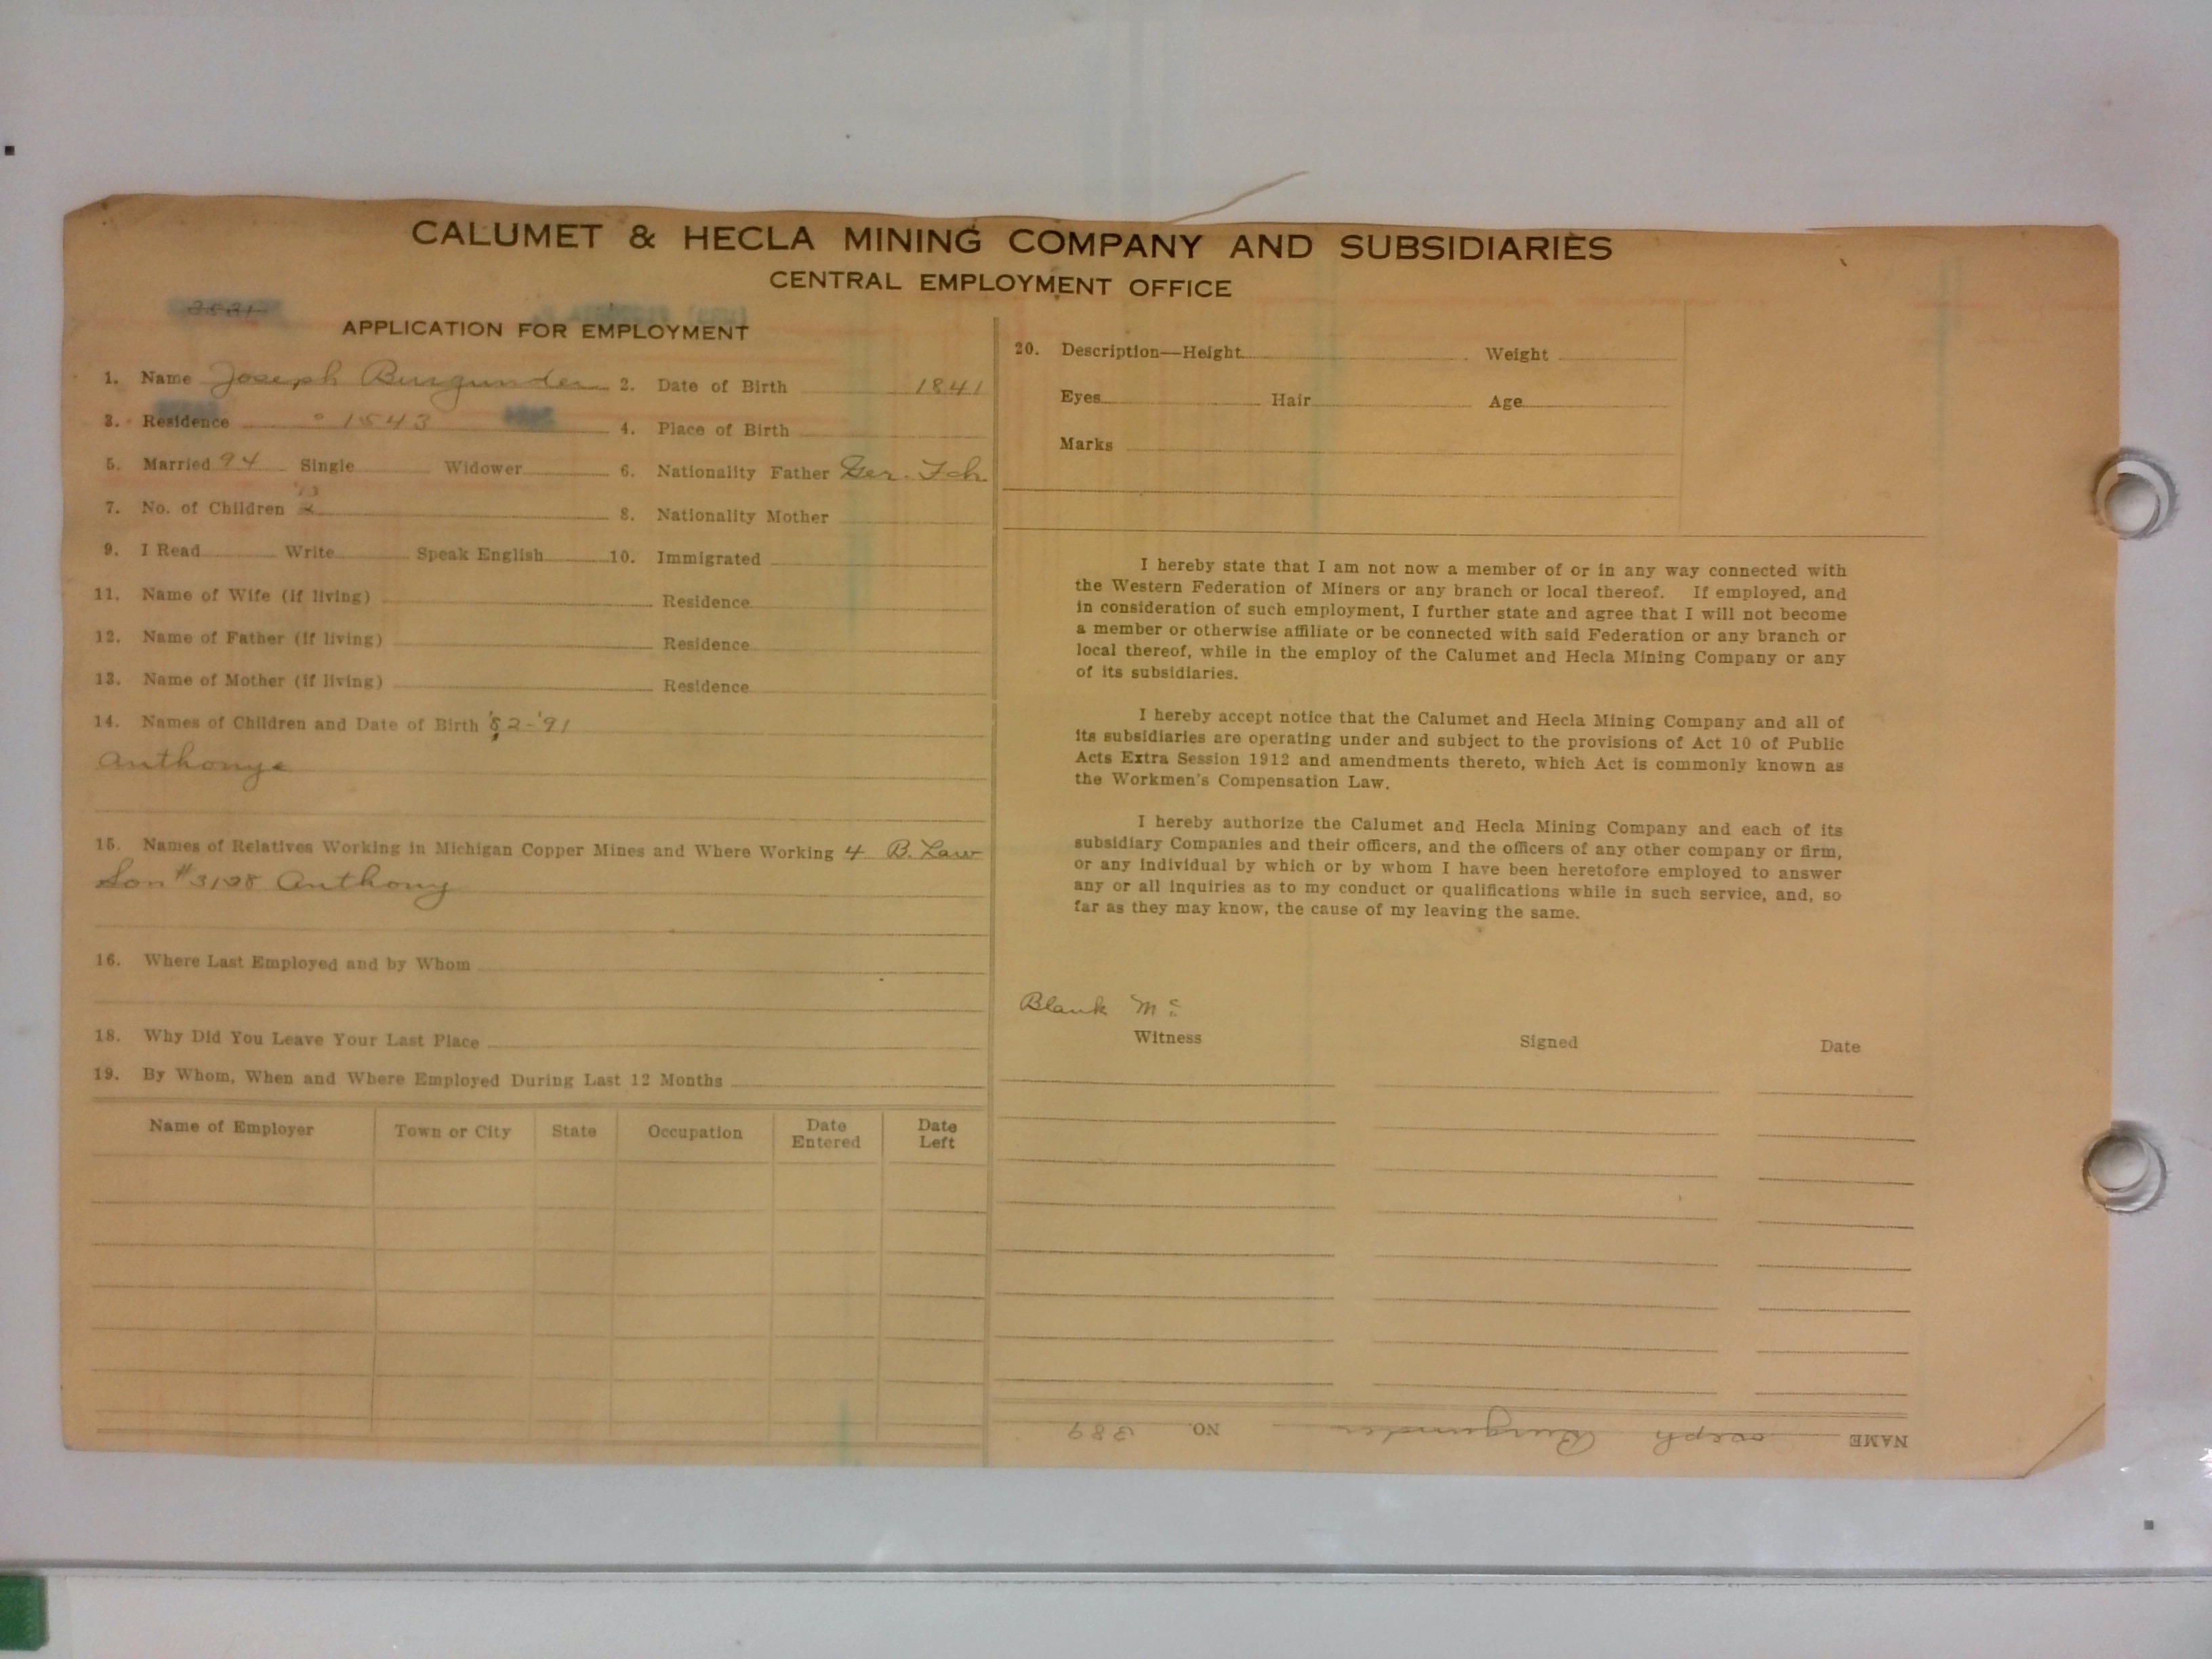 CALUMET & HECLA MINING COMPANY AND SUBSIDIARIES
CENTRAL EMPLOYMENT OFFICE
APPLICATION FOR EMPLOYMENT
1. Name Joseph Burgunder 2. Date of Birth 1841
3. Residence 1543 4. Place of Birth
5. Married 94 Single Widower 6. Nationality Father Ger. Fch
7. No. of Children 8. Nationality Mother
9. I Read Write Speak English 10. Immigrated
11. Name of Wife (if living) Residence
12. Name of Father (if living) Residence
13. Name of Mother (if living) Residence
14. Names of Children and Date of Birth '82-'91
Anthony
15. Names of Relatives Working in Michigan Copper Mines and Where Working 4 B. Law
Son #3128 Anthony
16. Where Last Employed and by Whom
18. Why Did You Leave Your Last Place
19. By Whom, When and Where Employed During Last 12 Months
Name of Employer Town or City State Occupation Date Entered Date Left
20. Description—Height Weight
Eyes Hair Age
Marks
I hereby state that I am not now a member of or in any way connected with
the Western Federation of Miners or any branch or local thereof. If employed, and
in consideration of such employment, I further state and agree that I will not become
a member or otherwise affiliate or be connected with said Federation or any branch or
local thereof, while in the employ of the Calumet and Hecla Mining Company or any
of its subsidiaries.
I hereby accept notice that the Calumet and Hecla Mining Company and all of
its subsidiaries are operating under and subject to the provisions of Act 10 of Public
Acts Extra Session 1912 and amendments thereto, which Act is commonly known as
the Workmen's Compensation Law.
I hereby authorize the Calumet and Hecla Mining Company and each of its
subsidiary Companies and their officers, and the officers of any other company or firm,
or any individual by which or by whom I have been heretofore employed to answer
any or all inquiries as to my conduct or qualifications while in such service, and, so
far as they may know, the cause of my leaving the same.
Blank Mc
Witness Signed Date
NAME Joseph Burgunder NO. 389